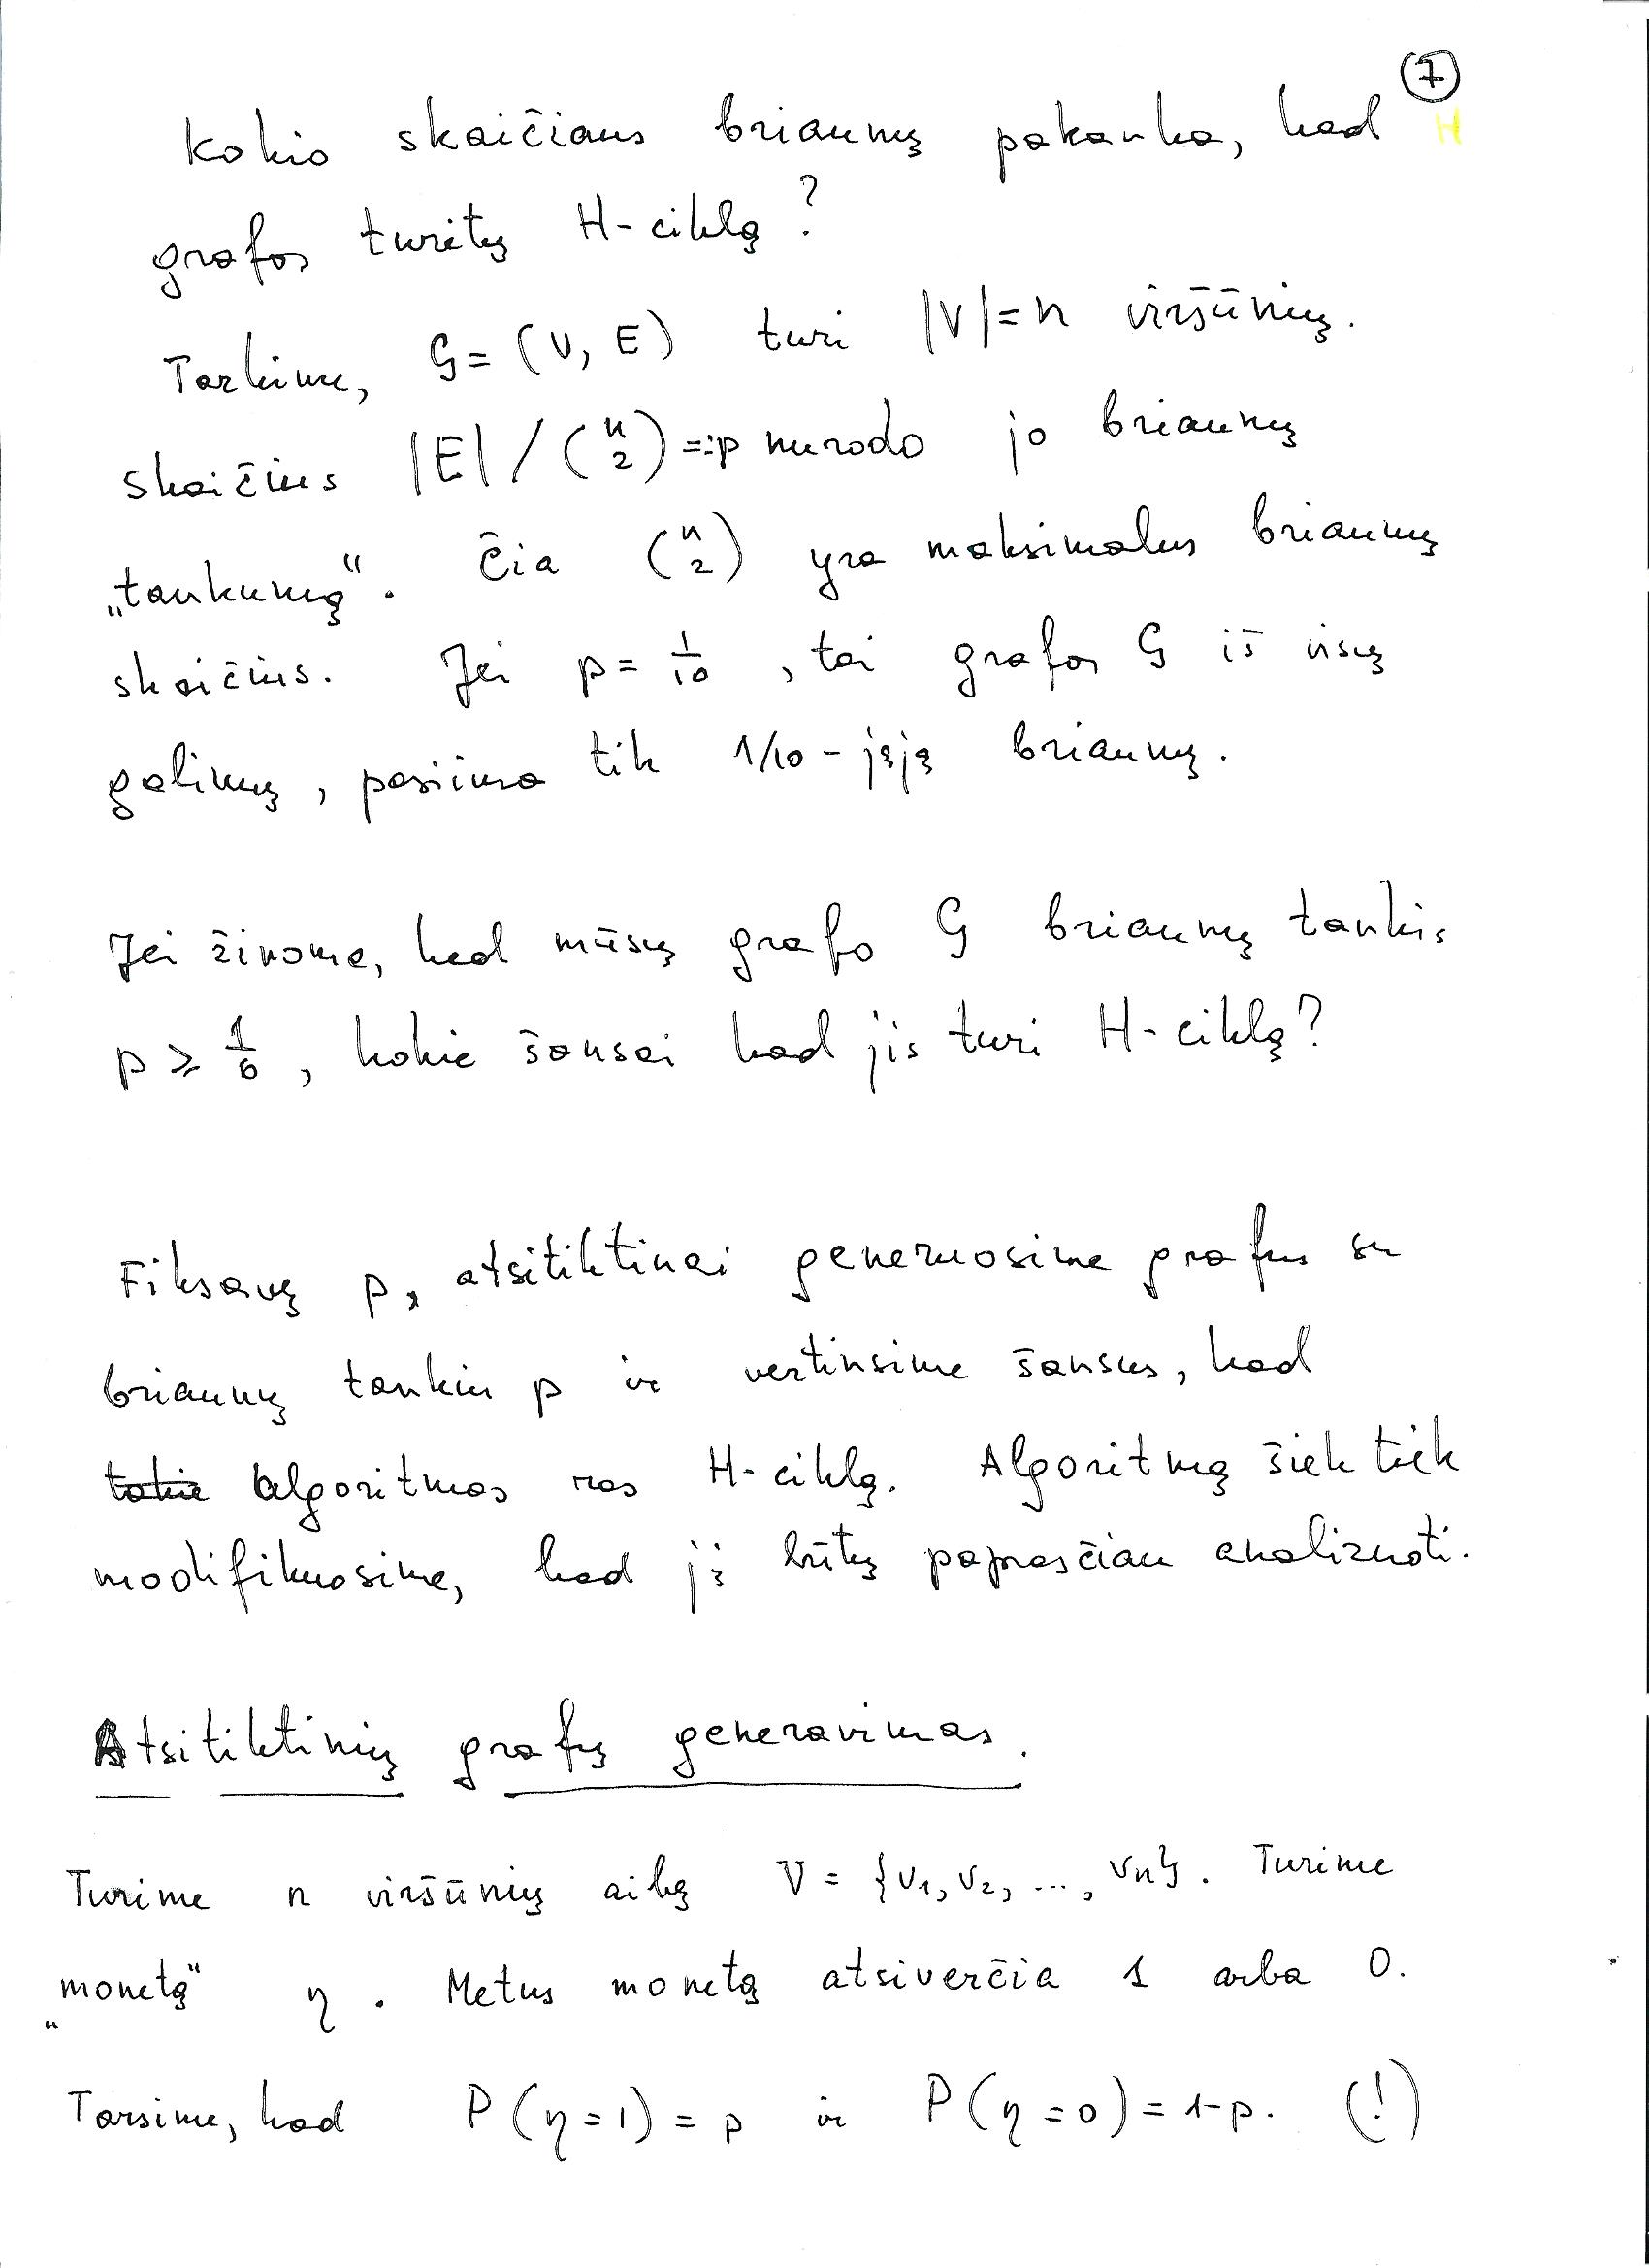 7
Kokio skaičiaus briaunų pakanka, kad H
grafas turėtų H-ciklą?
Tarkime, G=(V, E) turi |V|=n viršūnių.
Skaičius |E| / (n 2) =:p nurodo jo briaunų
„tankumą". Čia (n 2) yra maksimalus briaunų
skaičius. Jei p= 1/10 , tai grafas G iš visų
galimų, pasiima tik 1/10-jąją briaunų.
Jei žinome, kad mūsų grafo G briaunų tankis
p ≥ 1/6 , kokie šansai kad jis turi H-ciklą?
Fiksavę p, atsitiktinai generuosime grafus su
briaunų tankiu p ir vertinsime šansus, kad
tokie algoritmas ras H-ciklą. Algoritmą šiek tiek
modifikuosime, kad jį būtų paprasčiau analizuoti.
Atsitiktinių grafų generavimas.
Turime n viršūnių aibę V = {v1, v2, ..., vn}. Turime
„monetą" η. Metus monetą atsiverčia 1 arba 0.
Tarsime, kad P(η=1) = p ir P(η=0)=1-p. (!)